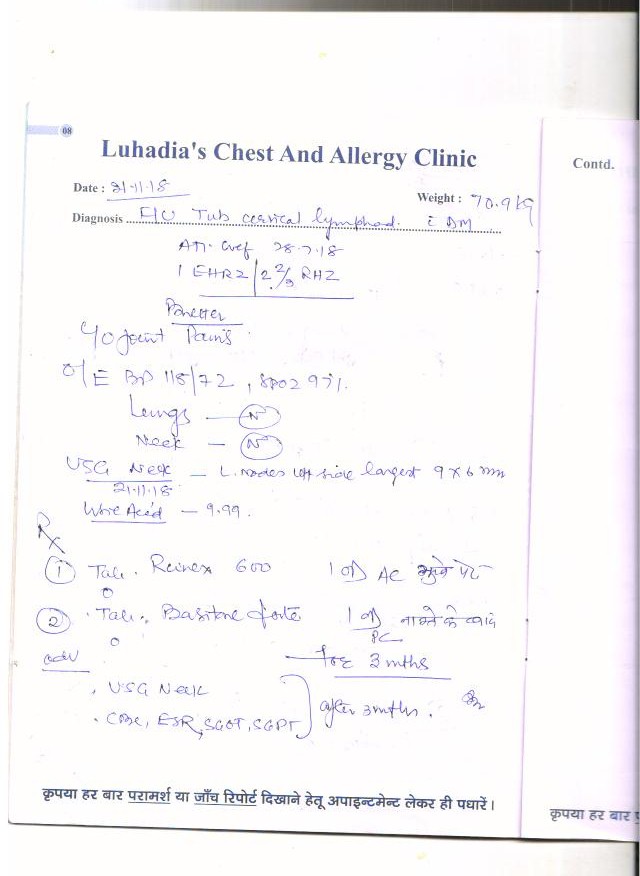 08
Luhadia's Chest And Allergy Clinic
Contd.
Date : 21-11-18
Weight : 70.9 kg
Diagnosis F/U Tub cervical lymphad. c̄ DM
28-7-18
1 EHRZ / 2 2/3 RHZ
Better
c/o joint Pains
O/E BP 118/72 , SPO2 97%.
Lungs — N
Neck — N
USG Neck — L. nodes left side largest 9 x 6 mm
21-11-18
Uric Acid — 9.99.
Rx
1 Tab. Rcinex 600 1 OD AC भूखे पेट
2 Tab. Basitone forte 1 OD नाश्ते के बाद
PC
adv
for 3 mths
. USG Neck
. CBC, ESR, SGOT, SGPT after 3 mths.
कृपया हर बार परामर्श या जाँच रिपोर्ट दिखाने हेतू अपाइन्टमेन्ट लेकर ही पधारें।
कृपया हर बार